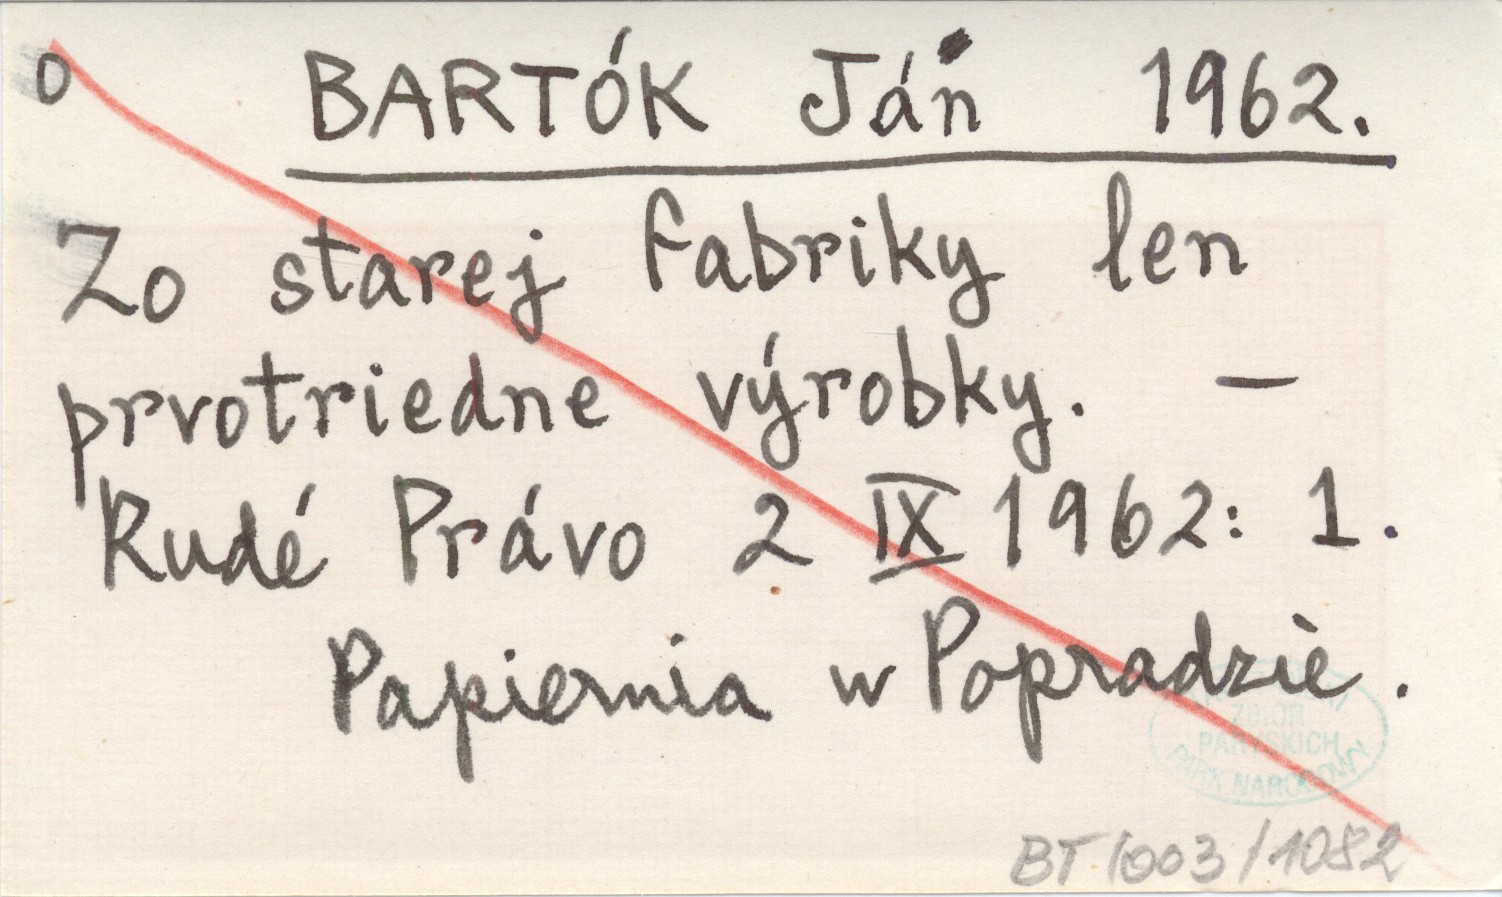 o BARTÓK Ján 1962.
Zo starej fabriky len
prvotriedne výrobky. —
Rudé Právo 2 IX 1962: 1.
Papiernia w Popradzie.
ZBIÓR
PARYSKICH
PARK NARODOWY
BT/003/1082